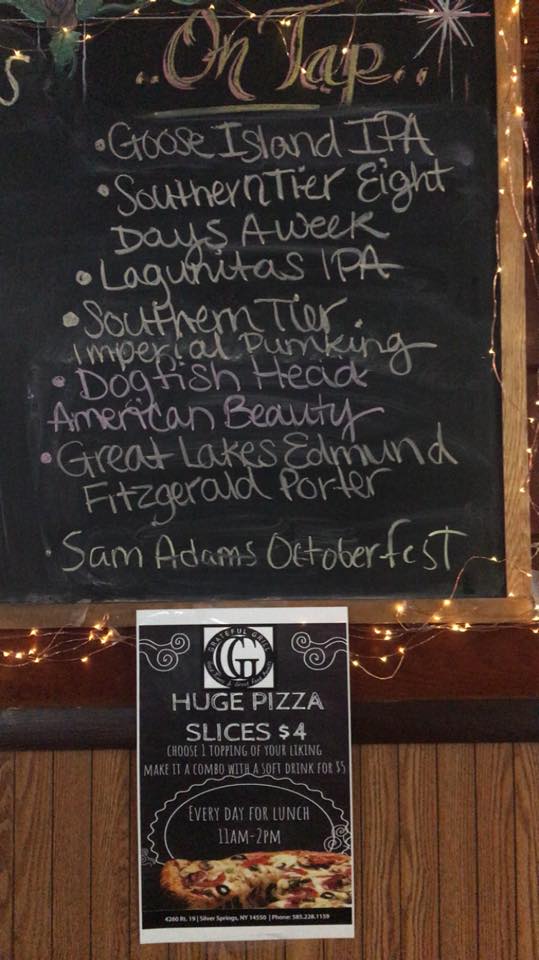 ..On Tap..
•Goose Island IPA
•Southern Tier Eight
Days A week
•Lagunitas IPA
•Southern Tier
Imperial Pumking
•Dogfish Head
American Beauty
•Great Lakes Edmund
Fitzgerald Porter
•Sam Adams Octoberfest
GRATEFUL GRILL
G
HUGE PIZZA
SLICES $4
CHOOSE 1 TOPPING OF YOUR LIKING
MAKE IT A COMBO WITH A SOFT DRINK FOR $5
EVERY DAY FOR LUNCH
11AM-2PM
4260 Rt. 19 | Silver Springs, NY 14550 | Phone: 585.228.1159